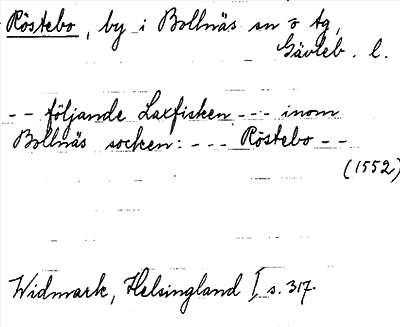 Röstebo, by i Bollnäs sn o tg,
Gävleb. l.
-- följande Laxfisken --- inom
Bollnäs socken: --- Röstebo --
(1552)
Widmark, Helsingland I s. 317.